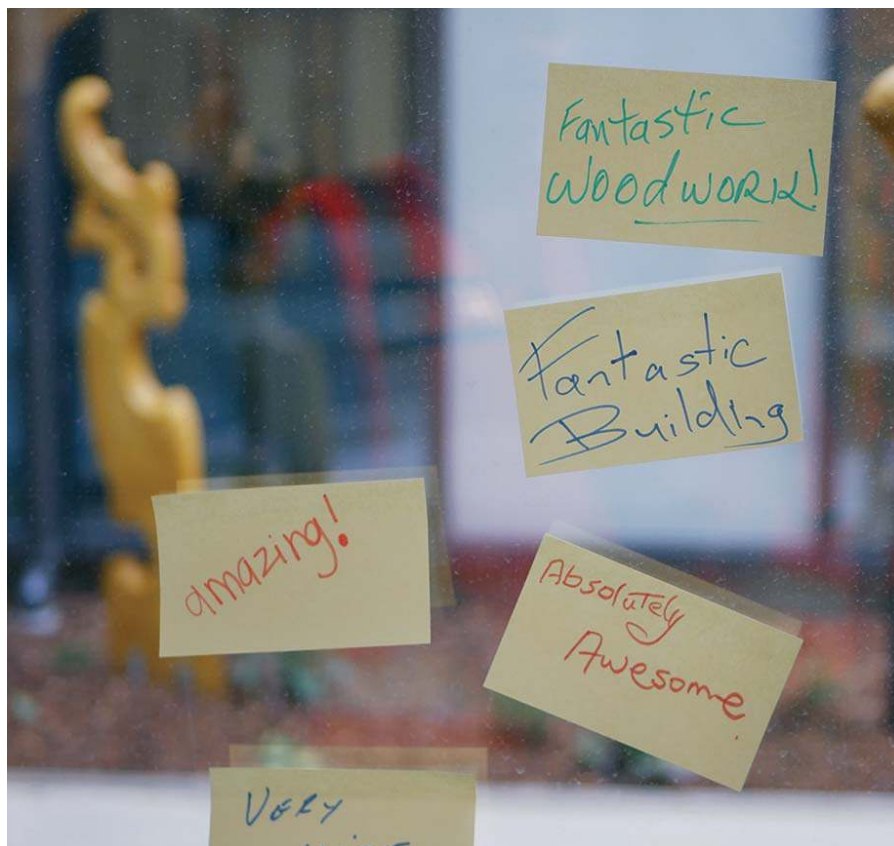 Fantastic
WOODWORK!
Fantastic
Building
amazing!
Absolutely
Awesome.
VERY